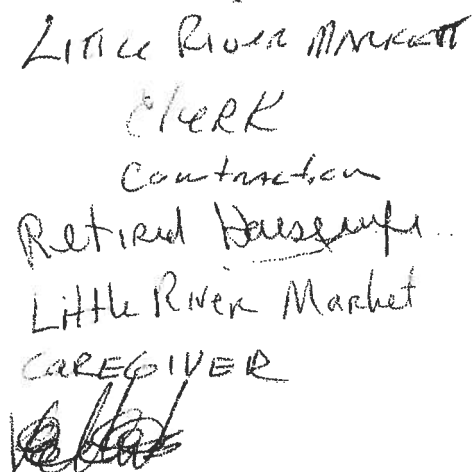 Little River Market
Clerk
Contraction
Retired Housewife
Little River Market
CAREGIVER